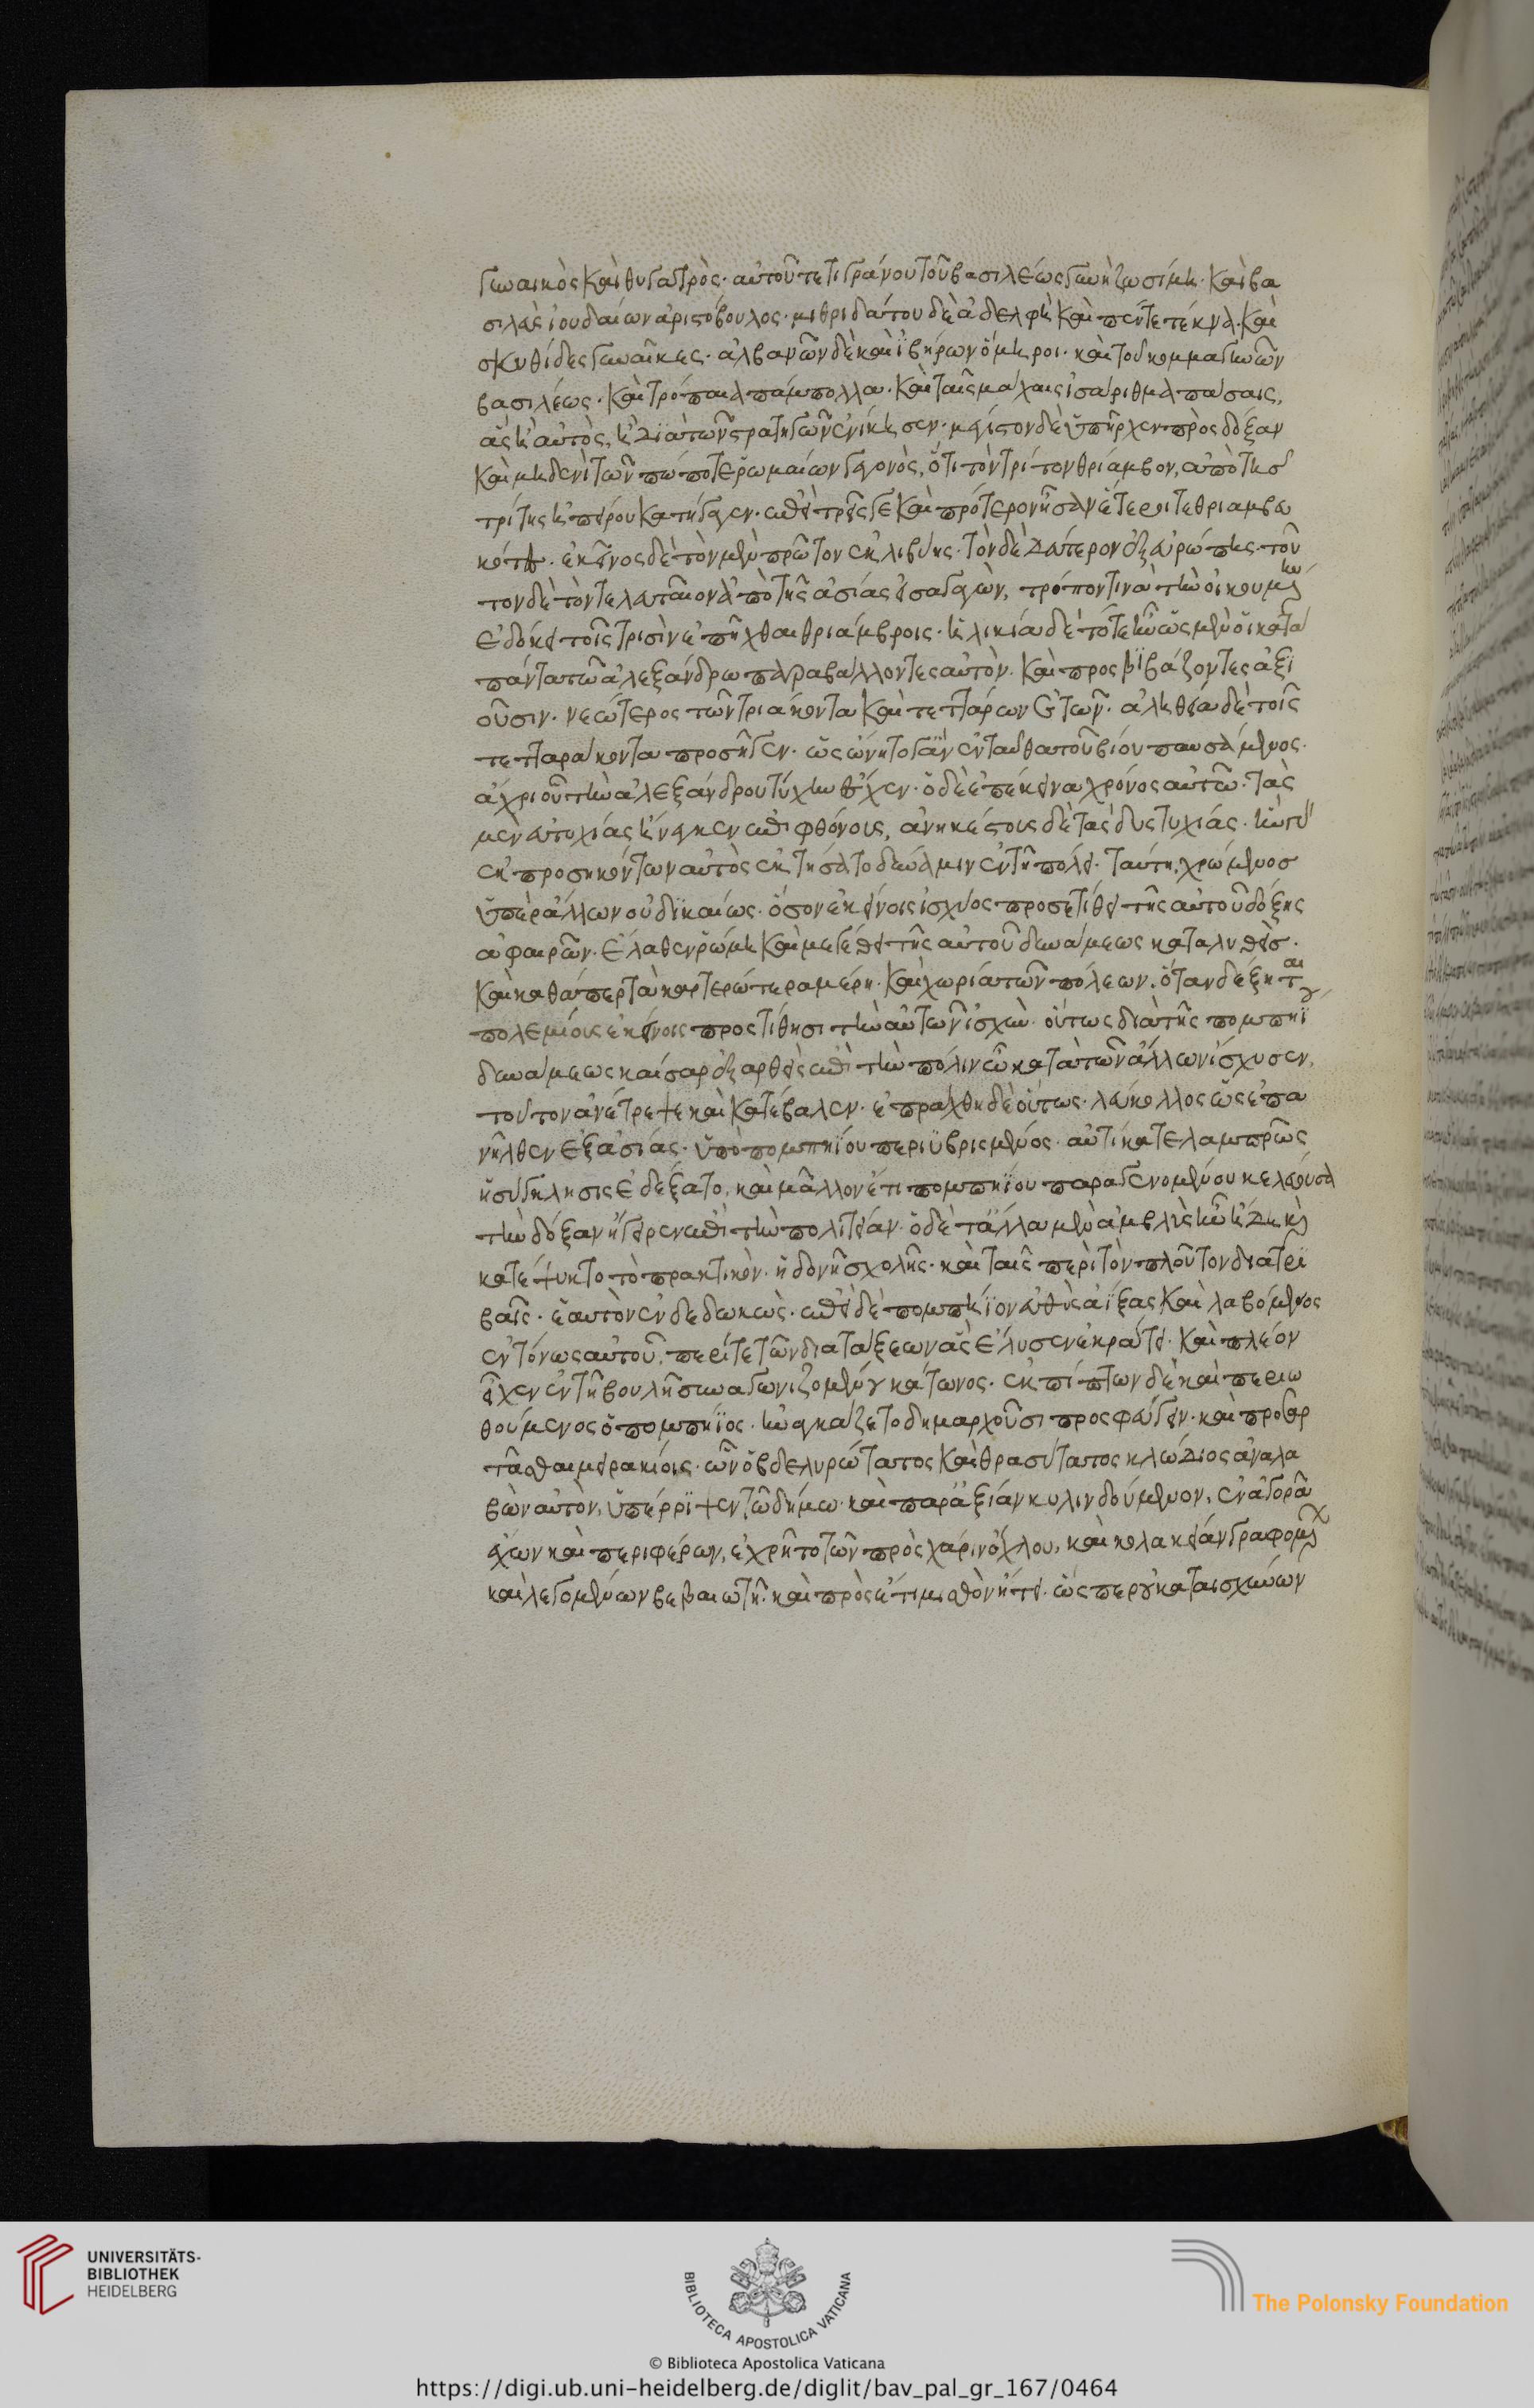 γυναικὸς καὶ θυγατρὸς· αὐτοῦ τε τιγράνου τοῦ βασιλέως γυνὴ ζωσίμη· καὶ βα
σιλεὺς ἰουδαίων ἀριστόβουλος· μιθριδάτου δὲ ἀδελφὴ καὶ πέντε τέκνα· καὶ
σκυθίδες γυναῖκες· ἀλβανῶν δὲ καὶ ἰβήρων ὅμηροι· καὶ τοῦ κομμαγηνῶν
βασιλέως· καὶ τρόπαια πάμπολλα· καὶ ταῖς μάχαις ἰσάριθμα πάσαις,
ἃς ἢ αὐτὸς, ἢ διὰ τῶν στρατηγῶν ἐνίκησεν· μέγιστον δὲ ὑπῆρχεν πρὸς δόξαν
καὶ μηδενὶ τῶν πώποτε ῥωμαίων γεγονὸς, ὅτι τὸν τρίτον θρίαμβον, ἀπὸ τῆσ
τρίτης ἠπείρου κατήγαγεν· ἐπεὶ τρεῖς γε καὶ πρότερον ἦσαν ἕτεροι τεθριαμβευ
κότες· ἐκεῖνος δὲ τὸν μὲν πρῶτον ἐκ λιβύης· τὸν δὲ δεύτερον ἐξ εὐρώπης· τοῦ
τον δὲ τὸν τελευταῖον ἀπὸ τῆς ἀσίας εἰσαγαγὼν, τρόπον τινὰ τὴν οἰκουμένην
ἐδόκει τοῖς τρισὶν ἐπῆχθαι θριάμβοις· ἡλικία δὲ τότε ἦν ὡς μὲν οἱ κατὰ
πάντα τῶ ἀλεξάνδρω παραβάλλοντες αὐτὸν· καὶ προσβιβάζοντες ἀξι
οῦσιν· νεώτερος τῶν τριάκοντα καὶ τεττάρων ἐτῶν· ἀληθεία δὲ τοῖς
τετταράκοντα προσῆγεν· ὡς ὤνητό γ' ἂν ἐνταῦθα τοῦ βίου παυσάμενος·
ἄχρι οὗ τὴν ἀλεξάνδρου τύχην ἔσχεν· ὁ δὲ ἐπέκεινα χρόνος αὐτῶ· τὰς
μὲν εὐτυχίας ἤνεγκεν ἐπιφθόνους, ἀνηκέστους δὲ τὰς δυστυχίας· ἣν γὰρ
ἐκ προσηκόντων αὐτὸς ἐκτήσατο δύναμιν ἐν τῆ πόλει· ταύτη χρώμενοσ
ὑπὲρ ἄλλων οὐ δικαίως· ὅσον ἐκείνοις ἰσχύος προσετίθει τῆς αὐτοῦ δόξης
ἀφαιρῶν· ἔλαθεν ῥώμη καὶ μεγέθει τῆς αὐτοῦ δυνάμεως καταλυθεὶσ·
καὶ καθάπερ τὰ καρτερώτερα μέρη· καὶ χωρία τῶν πόλεων· ὅταν δέξηται
πολεμίους ἐκείνοις προστίθησι τὴν αὑτῶν ἰσχὺν· οὕτως διὰ τῆς πομπηΐου
δυνάμεως καῖσαρ ἐξαρθεὶς ἐπὶ τὴν πόλιν ὧ κατὰ τῶν ἄλλων ἴσχυσεν,
τοῦτον ἀνέτρεψε καὶ κατέβαλεν· ἐπράχθη δὲ οὕτως· λεύκολλος ὡς ἐπα
νῆλθεν ἐξ ἀσίας· ὑπὸ πομπηΐου περιϋβρισμένος· αὐτίκα τε λαμπρῶς
ἡ σύγκλησις ἐδέξατο, καὶ μᾶλλον ἔτι πομπηΐου παραγενομένου κελεύουσα
τὴν δόξαν ἤγειρεν ἐπὶ τὴν πολιτείαν· ὁ δὲ τἄλλα μὲν ἀμβλὺς ἦν ἤδη καὶ
κατέψυκτο τὸ πρακτικὸν· ἡδονῆ σχολῆς· καὶ ταῖς περὶ τὸν πλοῦτον διατρι
βαῖς· ἑαυτὸν ἐνδεδωκὼς· ἐπεὶ δὲ πομπήϊον εὐθὺς ἀΐξας καὶ λαβόμενος
ἐντόνως αὐτοῦ, περί τε τῶν διατάξεων ἃς ἔλυσεν ἐκράτει· καὶ πλέον
εἶχεν ἐν τῆ βουλῆ συναγωνιζομένου κάτωνος· ἐκπίπτων δὲ καὶ περιω
θούμενος ὁ πομπήϊος· ἠναγκάζετο δημαρχοῦσι προσφεύγειν· καὶ προσαρ
τᾶσθαι μειρακίοις· ὧν ὁ βδελυρώτατος καὶ θρασύτατος κλώδιος ἀναλα
βὼν αὐτὸν, ὑπέρριψεν τῶ δήμω· καὶ παρ' ἀξίαν κυλινδούμενον, ἐν ἀγορᾶ
ἔχων καὶ περιφέρων, ἐχρῆτο τῶν πρὸς χάριν ὄχλου, καὶ κολακείαν γραφομένων
καὶ λεγομένων βεβαιωτῆ· καὶ προσέτι μισθὸν ἤτει· ὥσπερ οὐ καταισχύνων
UNIVERSITÄTS-
BIBLIOTHEK
HEIDELBERG
BIBLIOTECA APOSTOLICA VATICANA
The Polonsky Foundation
© Biblioteca Apostolica Vaticana
https://digi.ub.uni-heidelberg.de/diglit/bav_pal_gr_167/0464